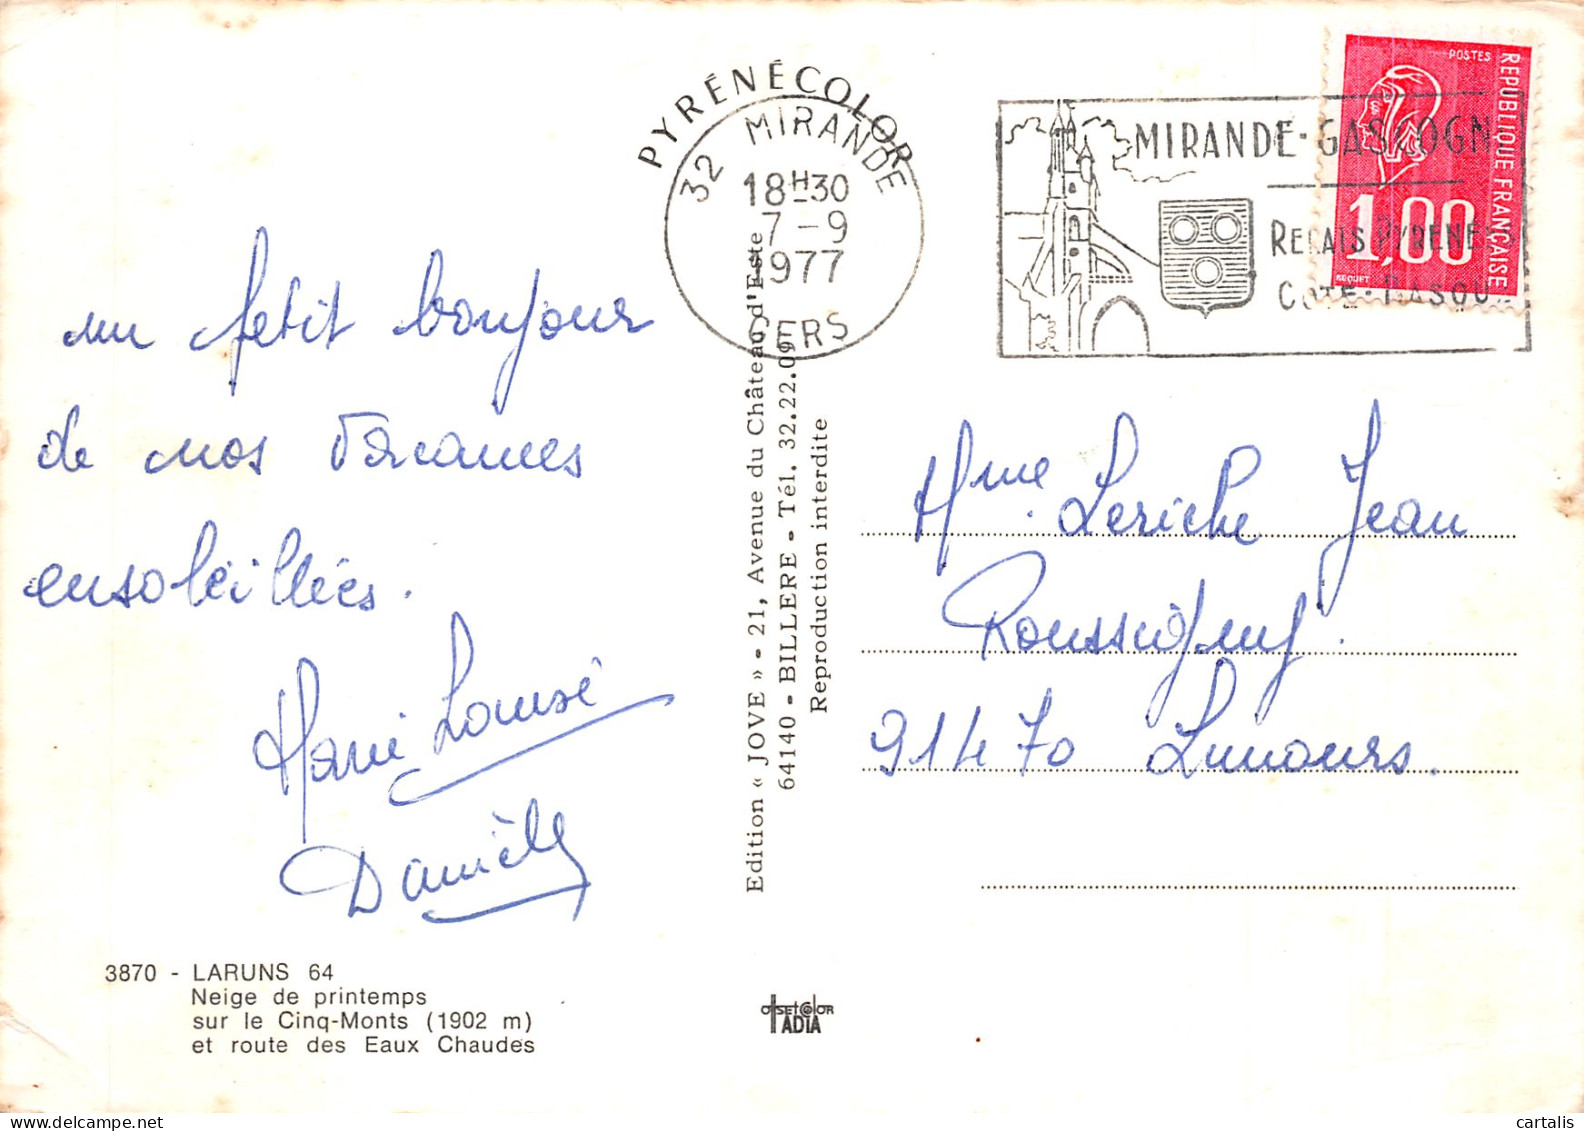 PYRÉNÉCOLOR
32 MIRANDE
18H30
7-9
1977
GERS
MIRANDE-GASCOGN
RELAIS PYRENE
COTE-BASQU
POSTES
REPUBLIQUE FRANÇAISE
1,00
BEQUET
un petit bonjour
de nos vacances
ensoleillées.
Marie Louise
Danièle
Mme Leriche Jean
91470 Limours.
Edition « JOVE » - 21, Avenue du Château d'Este
64140 - BILLERE - Tél. 32.22.09
Reproduction interdite
3870 - LARUNS 64
Neige de printemps
sur le Cinq-Monts (1902 m)
et route des Eaux Chaudes
OFFSETCOLOR
TADIA
cartalis